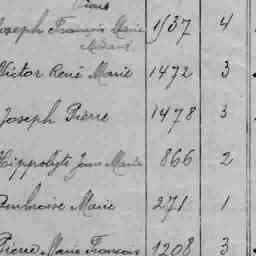 Joseph François Marie 1537 4
Victor René Marie 1472 3
Joseph Pierre 1478 3
Hippolyte Jean Marie 866 2
Ambroise Marie 271 1
Pierre Marie François 1208 3